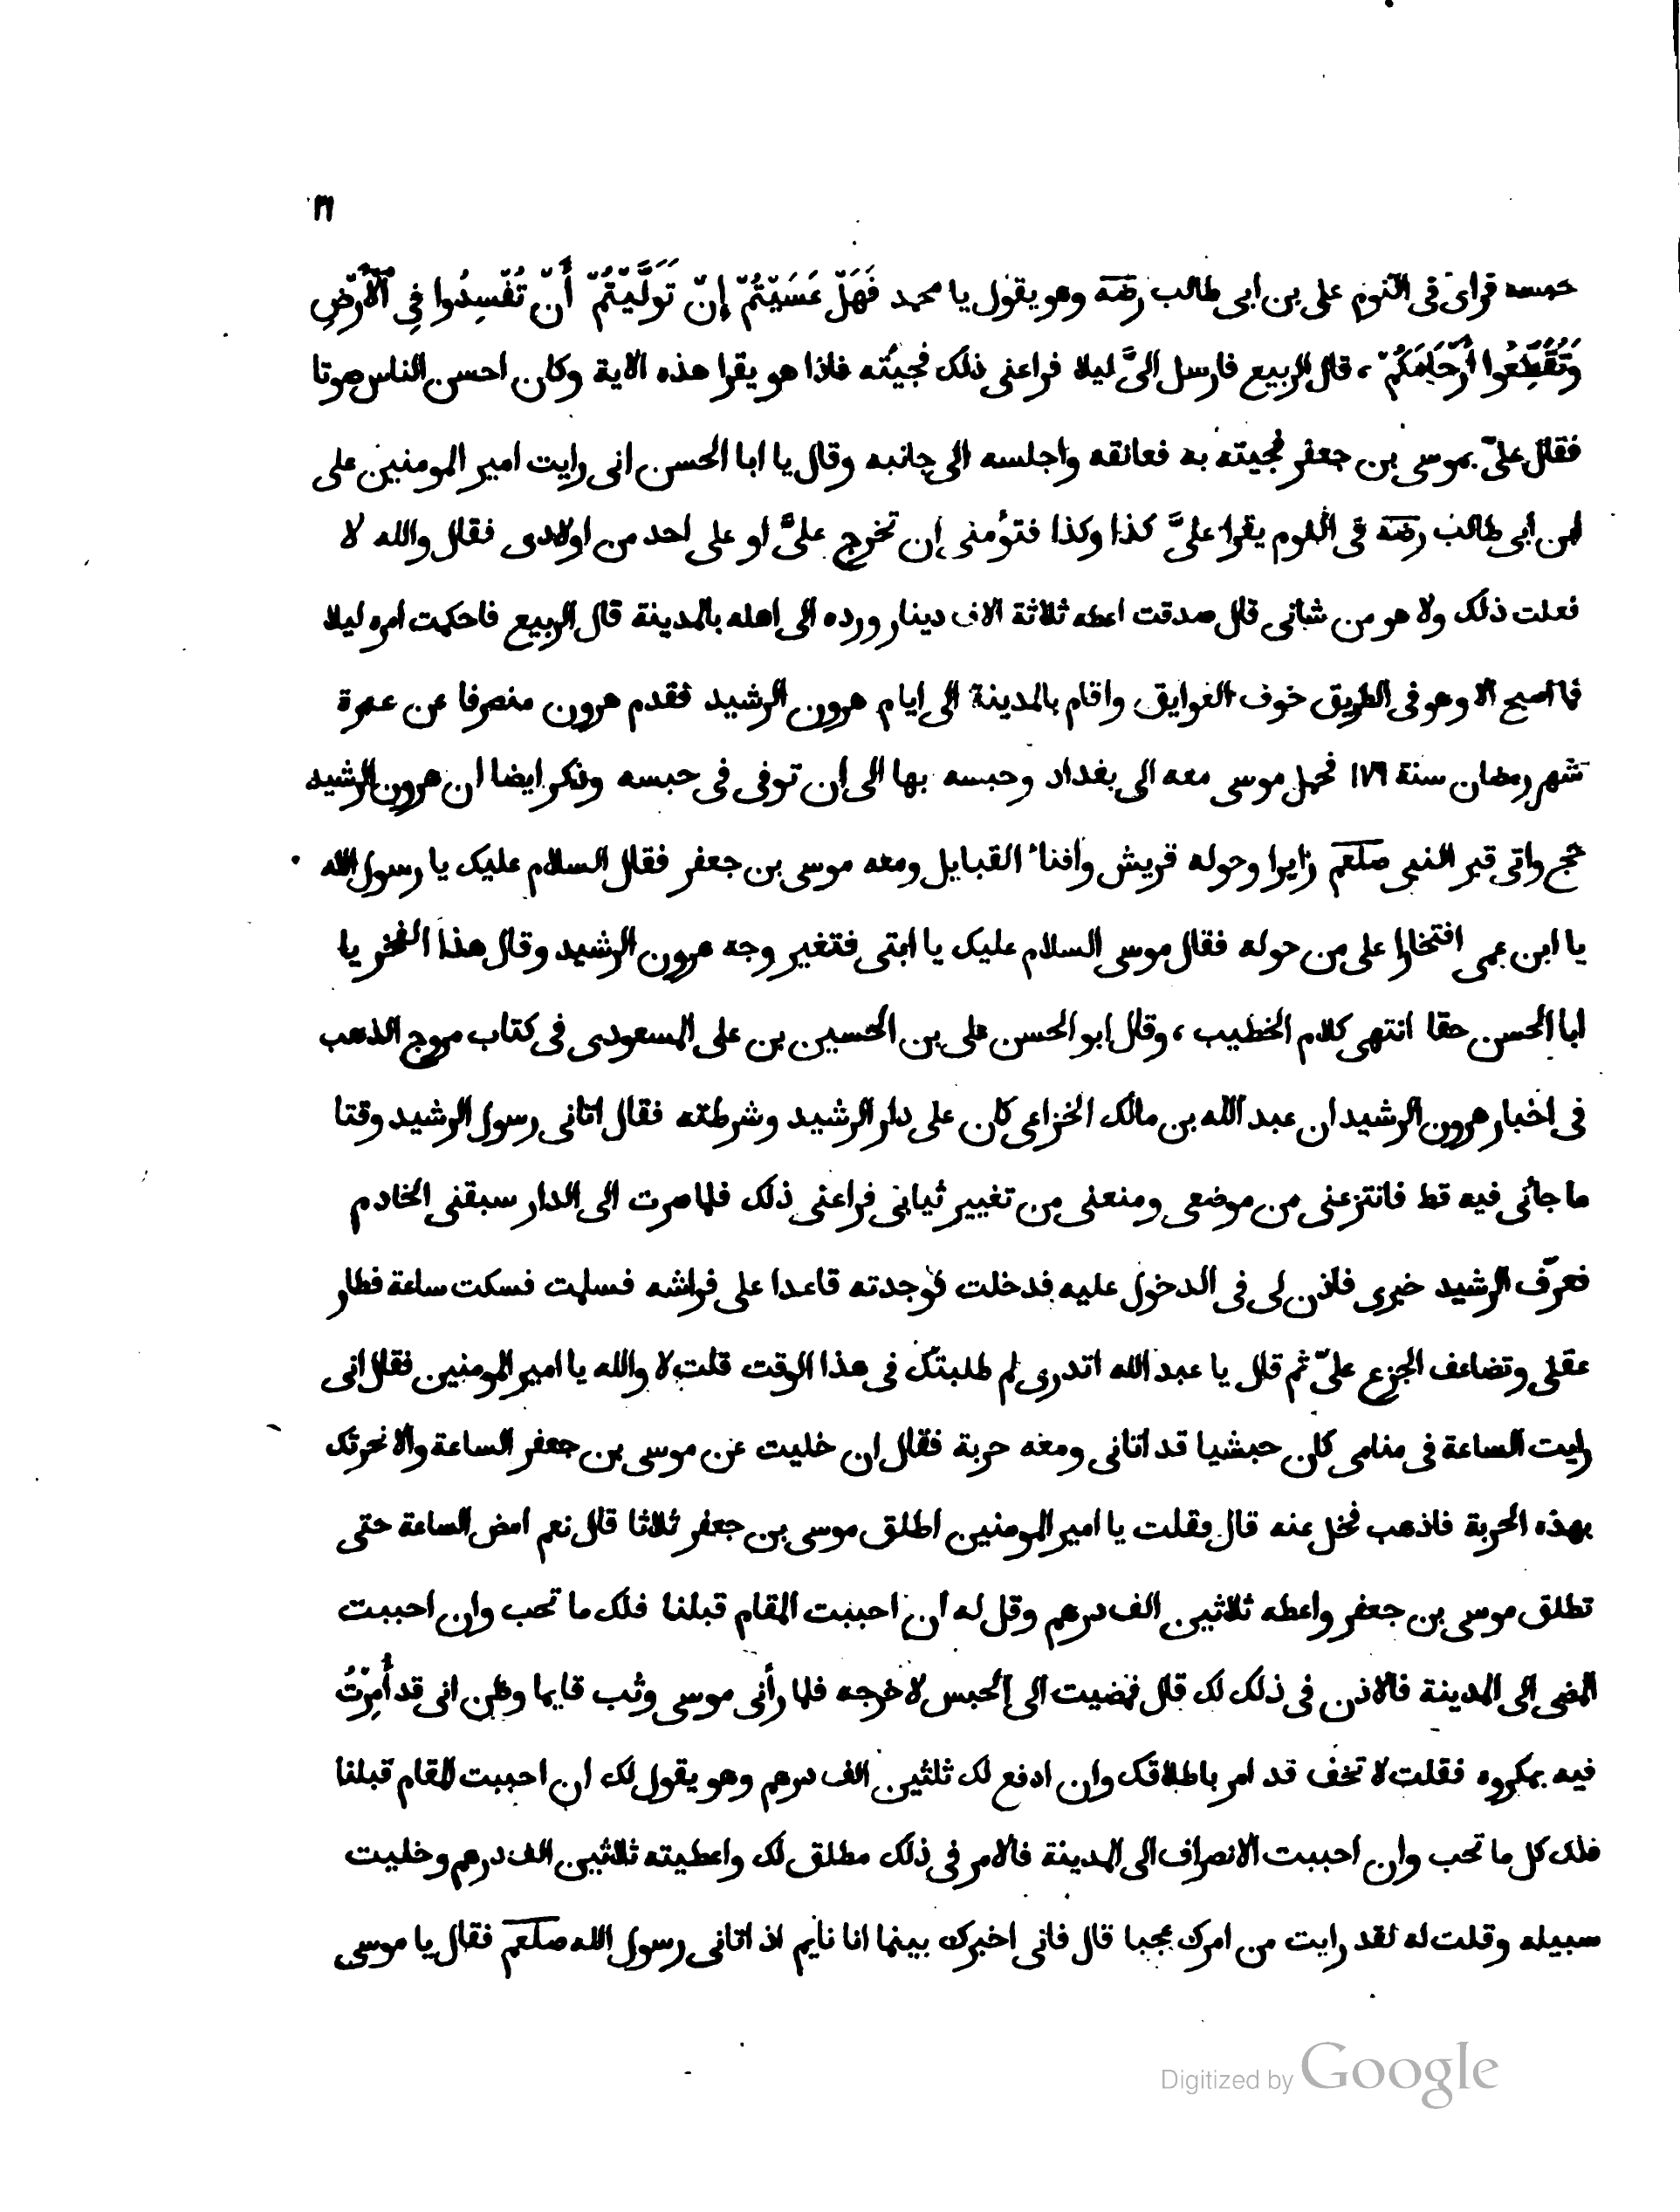 ٣١
حبسه فراى فى النوم على بن ابى طالب رضه وهو يقول يا محمد فَهَلْ عَسَيْتُمْ إِنْ تَوَلَّيْتُمْ أَنْ تُفْسِدُوا فِى ٱلْأَرْضِ
وَتُقَطِّعُوا أَرْحَامَكُمْ، قال الربيع فارسل الىَّ ليلا فراعنى ذلك فجيئته فاذا هو يقرا هذه الاية وكان احسن الناس صوتا
فقال علىّ بموسى بن جعفر فجيته به فعانقه واجلسه الى جانبه وقال يا ابا الحسن انى رايت امير المومنين على
ابن ابى طالب رضه فى النوم يقرا علىَّ كذا وكذا فتوُمنى ان تخرج علىَّ او على احد من اولادى فقال والله لا
فعلت ذلك ولا هو من شانى قال صدقت اعطه ثلاثة الاف دينار ورده الى اهله بالمدينة قال الربيع فاحكمت امره ليلا
فما اصبح الا وهو فى الطريق خوف العوايق واقام بالمدينة الى ايام هرون الرشيد فقدم هرون منصرفا من عمرة
شهر رمضان سنة ١٧٩ فحمل موسى معه الى بغداد وحبسه بها الى ان توفى فى حبسه وذكر ايضا ان هرون الرشيد
حج واتى قبر النبى صلعم زايرا وحوله قريش وافناء القبايل ومعه موسى بن جعفر فقال السلام عليك يا رسول الله
يا ابن عمى افتخارا على من حوله فقال موسى السلام عليك يا ابتى فتغير وجه هرون الرشيد وقال هذا الفخر يا
ابا الحسن حقا انتهى كلام الخطيب، وقال ابو الحسن على بن الحسين بن على المسعودى فى كتاب مروج الذهب
فى اخبار هرون الرشيد ان عبد الله بن مالك الخزاعى كان على دار الرشيد وشرطته فقال اتانى رسول الرشيد وقتا
ما جأنى فيه قط فانتزعنى من موضعى ومنعنى من تغيير ثيابى فراعنى ذلك فلما صرت الى الدار سبقنى الخادم
فعرّف الرشيد خبرى فاذن لى فى الدخول عليه فدخلت فوجدته قاعدا على فراشه فسلمت فسكت ساعة فطار
عقلى وتضاعف الجزع علىّ ثم قال يا عبد الله اتدرى لم طلبتك فى هذا الوقت قلت لا والله يا امير المومنين فقال انى
رايت الساعة فى منامى كان حبشيا قد اتانى ومعه حربة فقال ان خليت عن موسى بن جعفر الساعة والا نحرتك
بهذه الحربة فاذهب فخل عنه قال فقلت يا امير المومنين اطلق موسى بن جعفر ثلاثا قال نعم امض الساعة حتى
تطلق موسى بن جعفر واعطه ثلاثين الف درهم وقل له ان احببت المقام قبلنا فلك ما تحب وان احببت
المضى الى المدينة فالاذن فى ذلك لك قال فمضيت الى الحبس لاخرجه فلما رأنى موسى وثب قايما وظن انى قد أُمِرْتُ
فيه بمكروه فقلت لا تخف قد امر باطلاقك وان ادفع لك ثلثين الف درهم وهو يقول لك ان احببت المقام قبلنا
فلك كل ما تحب وان احببت الانصراف الى المدينة فالامر فى ذلك مطلق لك واعطيته ثلاثين الف درهم وخليت
سبيله وقلت له لقد رايت من امرك عجبا قال فانى اخبرك بينما انا نايم اذ اتانى رسول الله صلعم فقال يا موسى
Digitized by Google